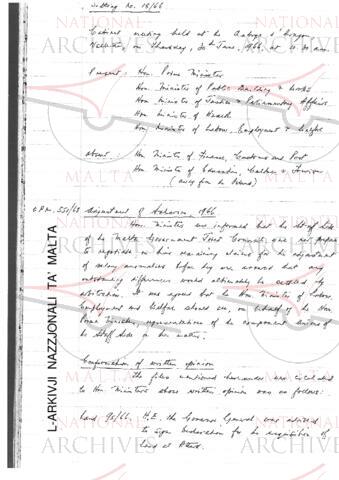 Sitting No. 18/66
Cabinet meeting held at the Auberge d'Aragon
Valletta, on Thursday, 30th June, 1966, at 10.30 a.m.
Present: Hon. Prime Minister
Hon. Minister of Public Building & Works
Hon. Minister of Justice & Parliamentary Affairs
Hon. Minister of Health
Hon. Minister of Labour, Employment & Welfare
Absent: Hon. Minister of Finance, Customs and Port
Hon. Minister of Education, Culture & Tourism
(away from the Island)
O.P.M. 550/63
Hon. Ministers were informed that the Staff Side
of the Malta Government Joint Council was not prepared
to negotiate on their remaining claims for the adjustment
of salary anomalies before they were assured that any
outstanding differences would ultimately be settled by
arbitration. It was agreed that the Hon. Minister of Labour,
Employment and Welfare should see, on behalf of the Hon.
Prime Minister, representatives of the component unions of
the Staff Side on the matter.
Confirmation of written opinion
The files mentioned hereunder were circulated
to Hon. Ministers whose written opinion was as follows:
Land 90/66. H.E. the Governor General was advised
to sign declaration for the acquisition of
land at
L-ARKIVJI NAZZJONALI TA' MALTA
NATIONAL
ARCHIVES
MALTA